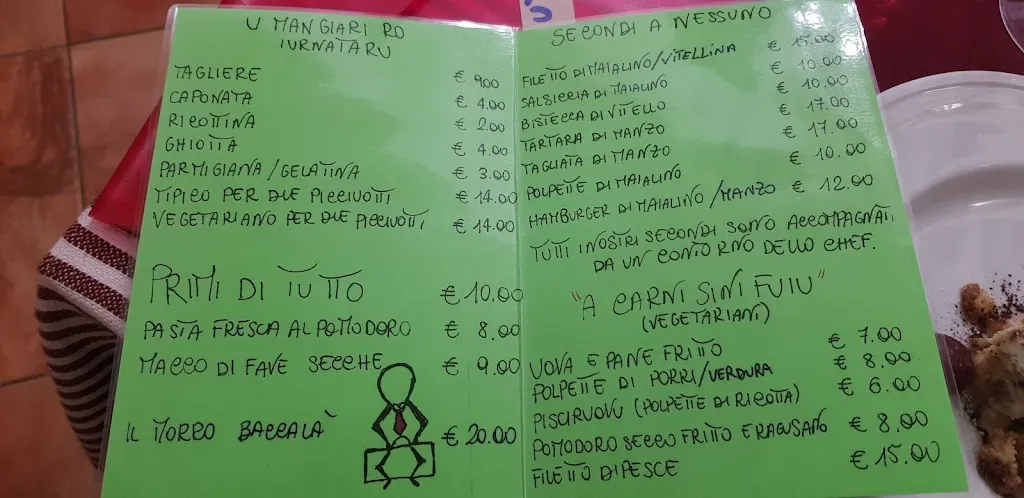 U MANGIARI RO
IURNATARU
TAGLIERE € 900
CAPONATA € 4.00
RICOTTINA € 2.00
GHIOTTA € 4.00
PARMIGIANA / GELATINA € 3.00
TIPICO PER DUE PICCIVOTTI € 14.00
VEGETARIANO PER DUE PICCIVOTTI € 14.00
PRIMI DI TUTTO € 10.00
PASTA FRESCA AL POMODORO € 8.00
MACCO DI FAVE SECCHE € 9.00
IL MORRO BACCALÀ € 20.00
SECONDI A NESSUNO
FILETTO DI MAIALINO/VITELLINA € 15.00
SALSICCIA DI MAIALINO € 10.00
BISTECCA DI VITELLO € 10.00
TARTARA DI MANZO € 17.00
TAGLIATA DI MANZO € 17.00
POLPETTE DI MAIALINO € 10.00
HAMBURGER DI MAIALINO /MANZO € 12.00
TUTTI I NOSTRI SECONDI SONO ACCOMPAGNATI
DA UN CONTORNO DELLO CHEF.
"A CARNI SINI FUIU"
(VEGETARIANI)
UOVA E PANE FRITTO € 7.00
POLPETTE DI PORRI/VERDURA € 8.00
PISCIRUOVU (POLPETTE DI RICOTTA) € 6.00
POMODORO SECCO FRITTO E RAGUSANO € 8,00
FILETTO DI PESCE € 15.00